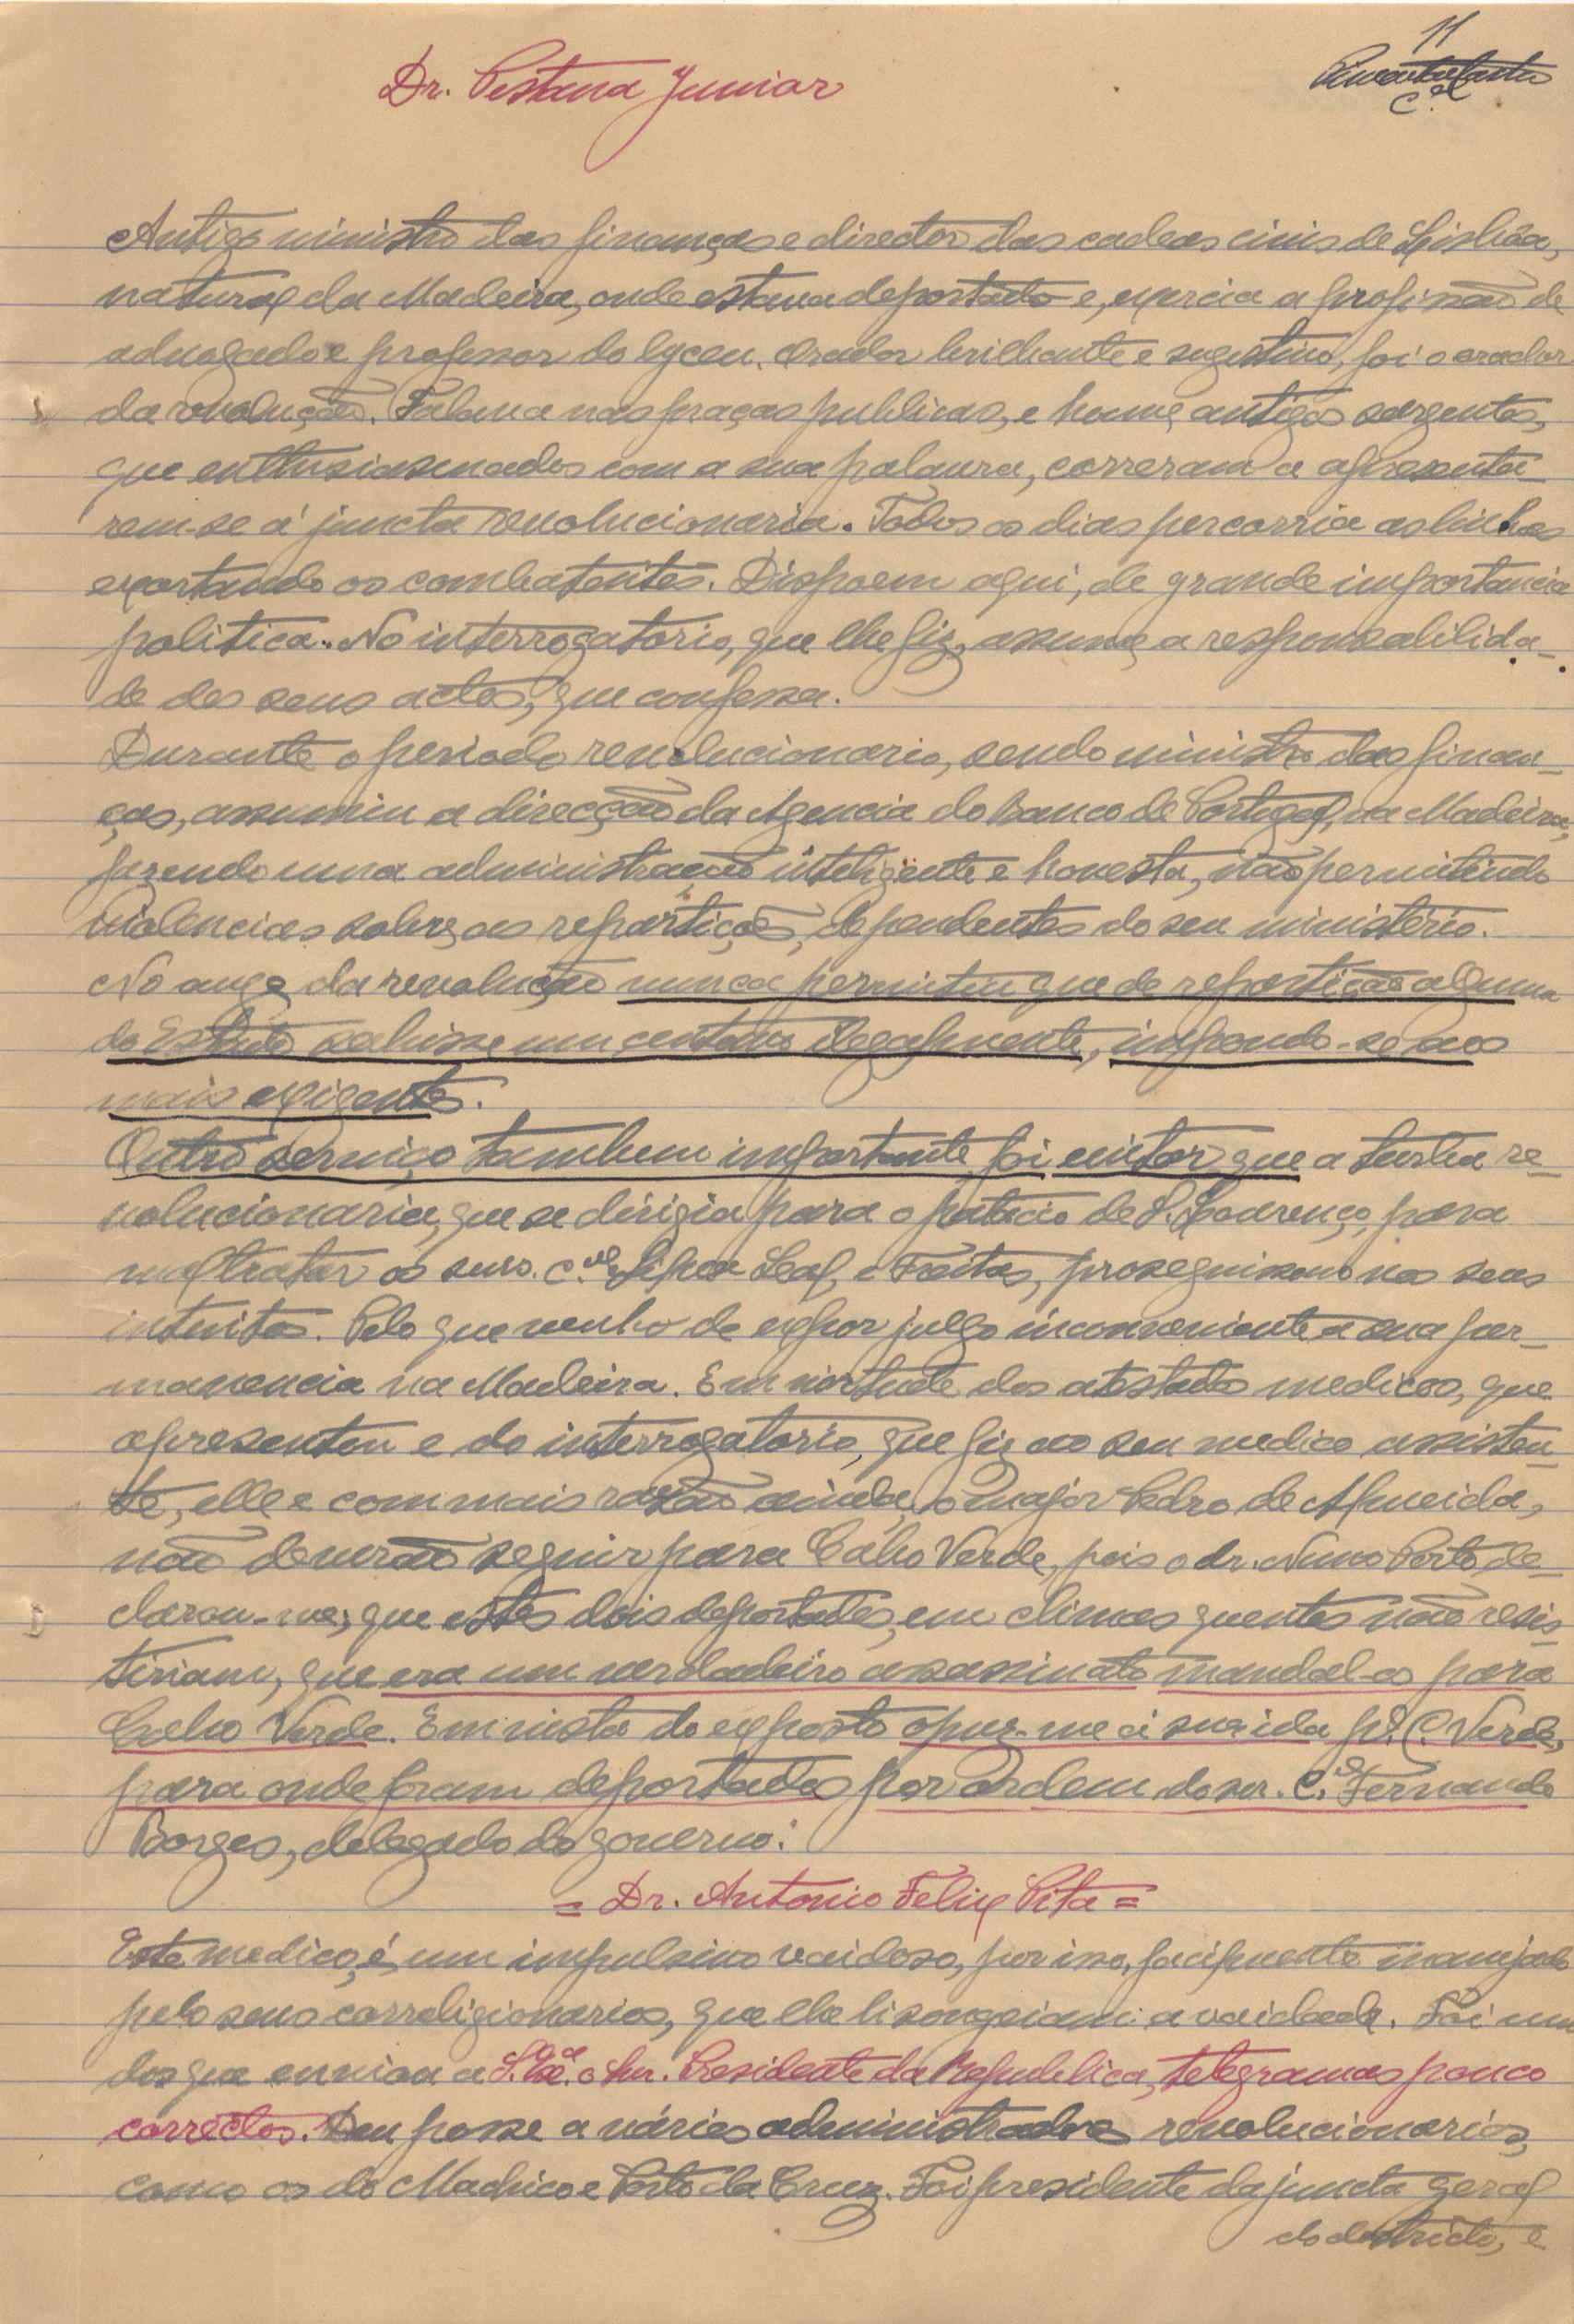 11
Dr. Pestana Junior
C.el
Antigo ministro das finanças e director das cadeas civis de Lisbôa,
natural da Madeira, onde estava deportado e, exercia a profissão de
advogado e professor do lyceu. Orador brilhante e sugestivo, foi o orador
da revolução. Falava nas praças publicas, e houve antigos sargentos,
que enthusiasmados com a sua palavra, correram a apresenta-
rem-se á juncta revolucionaria. Todos os dias percorria as linhas
exortando os combatentes. Dispoem aqui, de grande importancia
politica. No interrogatorio, que lhe fiz, assume a responsabilida-
de dos seus actos, que confessa.
Durante o periodo revolucionario, sendo ministro das finan-
ças, assumiu a direcção da Agencia do Banco de Portugal, na Madeira,
fazendo uma administração inteligente e honesta, não permitindo
violencias sobre as repartições, dependentes do seu ministério.
No auge da revolução nunca permitiu que de repartição alguma
do Estado sahisse um centavo ilegalmente, impondo-se aos
mais exigentes.
Outro serviço tambem importante foi evitar que a turba re-
volucionaria, que se dirigia para o palacio de S. Lourenço, para
maltratar os snrs. c.eis Silva Leal e Freitas, proseguissem nos seus
intuitos. Pelo que venho de expor julgo inconveniente a sua per-
manencia na Madeira. Em virtude dos atestados medicos, que
apresentou e do interrogatorio, que fiz ao seu medico assisten-
te, elle e com mais razão ainda, o major Pedro de Almeida,
não deverão seguir para Cabo Verde, pois o dr. Nuno Porto de-
clarou-me, que estes dois deportados, em climas quentes não resis-
tiriam, que era um verdadeiro assassinato mandal-os para
Cabo Verde. Em vista do exposto opuz-me á sua ida p.ª C. Verde,
para onde foram deportados por ordem do snr. C.el Fernando
Borges, delegado do governo.
= Dr. Antonio Felix Pita =
Este medico, é um impulsivo vaidoso, por isso, facilmente manejado
pelo seus correligionarios, que lhe lisongeiam a vaidade. Foi um
dos que enviou a S. Ex.ª o Snr. Presidente da Republica, telegramas pouco
correctos. Deu posse a vários administradores revolucionarios,
como os do Machico e Porto da Cruz. Foi presidente da juncta geral
do destricto, e